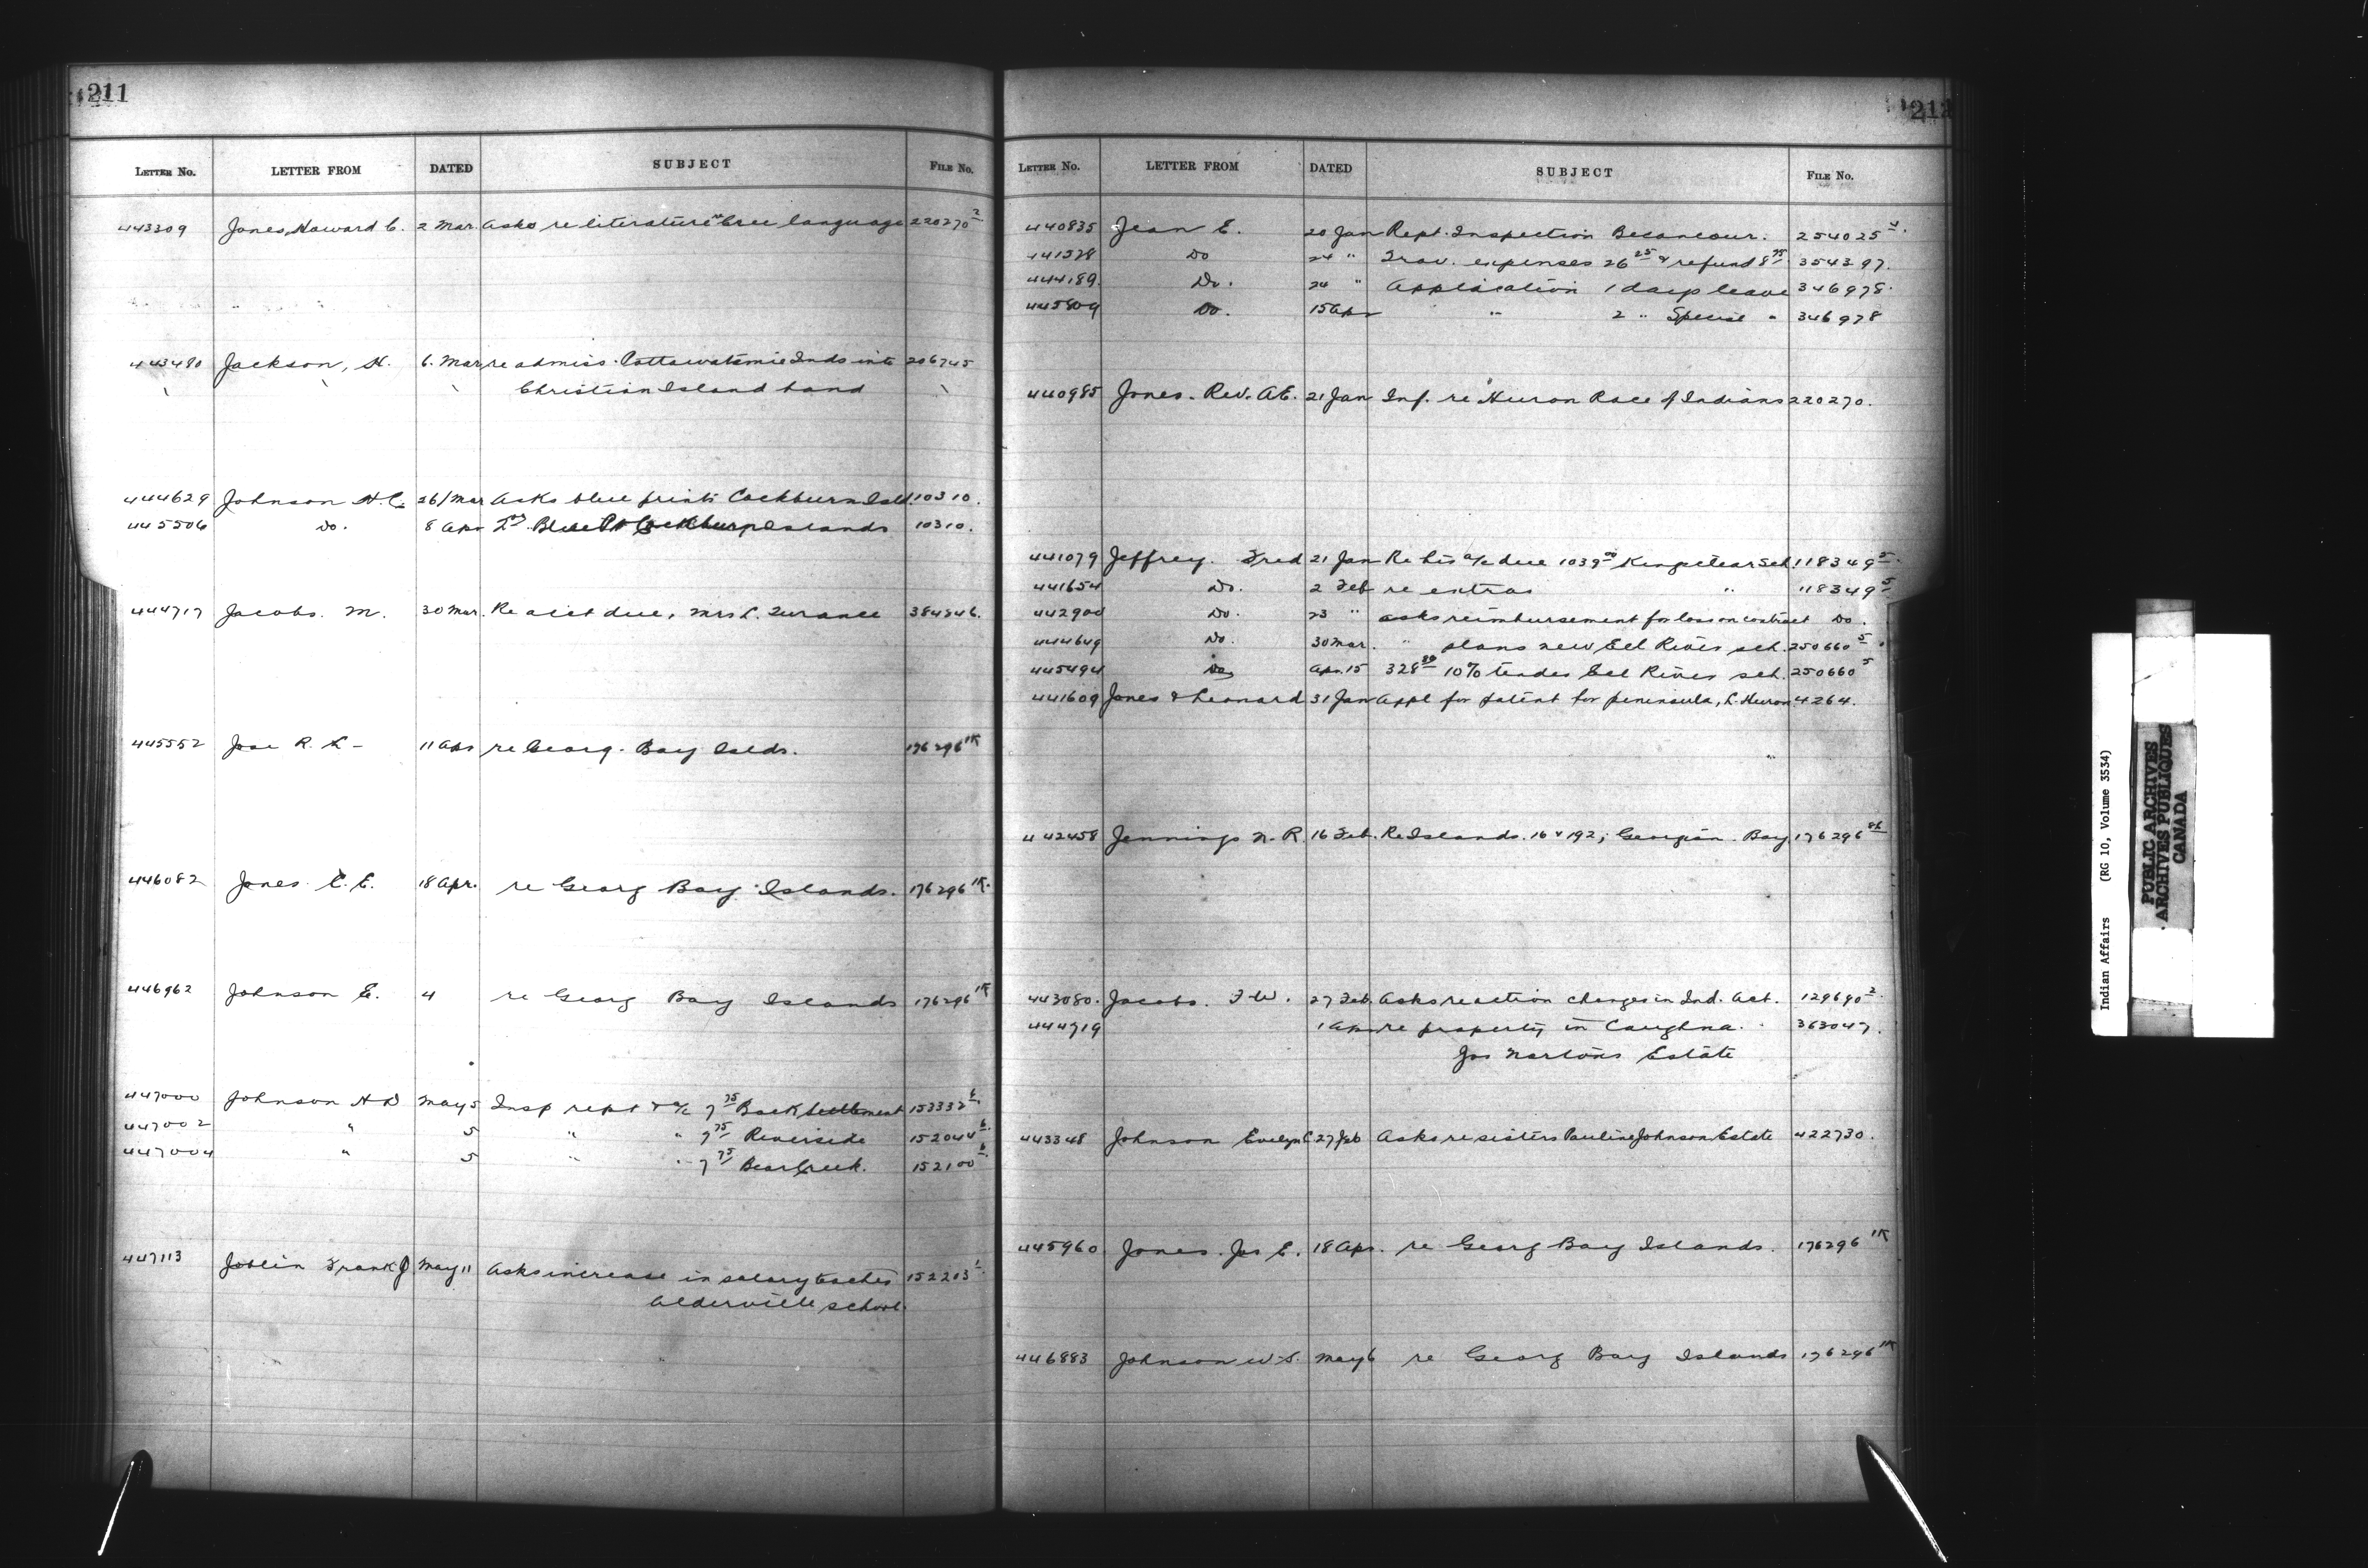 211
LETTER No. LETTER FROM DATED SUBJECT FILE No.
443309 Jones, Howard C. 2 Mar. Asks re literature in Cree language 220270 2
443480 Jackson, H. 6. Mar re admiss. Pottawatamie Inds into 206745
Christian Island band
444629 Johnson H.C. 26/Mar Asks blue prints Cockburn Isld. 10310.
445506 Do. 8 Apr Blue Pt Cockburn Islands 10310.
444717 Jacobs. M. 30 Mar. Re acct due, Mrs L. 384346.
445552 R. L - 11 Apr re Georg. Bay Islds. 176296 1K
446082 Jones E.E. 18 Apr. re Georg Bay Islands. 176296 1K.
446962 Johnson E. 4 re Georg Bay Islands 176296 1K
447000 Johnson H D May 5 Insp rept & a/c 7 75 Back Settlement 153332 6.
447002 " 5 " " 7 75 Riverside 152044 6.
447004 " 5 " " 7 75 Bear Creek. 152100 6.
447113 Joblin Frank J May 11 Asks increase in salary teacher 152203 1.
Alderville school.
212
LETTER No. LETTER FROM DATED SUBJECT FILE No.
440835 Jean E. 20 Jan Rept. Inspection Becancour. 254025 4.
441328 Do 24 " Trav. expenses 26 25 & refund 8 75 354397.
444189. Do. 24 " Application 1 days leave 346978.
445809 Do. 15 Apr " 2 " Special " 346978
440985 Jones. Rev. A.E. 21 Jan Inf. re Huron Race of Indians 220270.
441079 Jeffrey. Fred 21 Jan Re his a/c due 1039 00 Kingsclear Sch. 118349 5.
441654 Do. 2 Feb re extras " 118349 5.
442900 Do. 23 " asks reimbursement for loss on contract Do.
444649 Do. 30 Mar. " plans new Eel River sch. 250660 5.
445494 Do Apr. 15 328 80 10% tender Eel River sch. 250660 5
441609 Jones & Leonard 31 Jan Appl for patent for peninsula, L. Huron 4264.
442458 Jennings N.R. 16 Feb. Re Islands. 16 & 192, Georgian. Bay 176296 86
443080. Jacobs. F.W. 27 Feb. Asks re action changes in Ind. Act. 129690 2.
444719 1 Apr re property in Caughna. 363047.
Jos Nortons Estate
443348 Johnson Evelyn C 27 Feb Asks re sisters Pauline Johnson Estate 422730.
445960 Jones. Jos E. 18 Apr. re Georg Bay Islands. 176296 1K
446883 Johnson W.S. May 6 re Georg Bay Islands 176296 1K
Indian Affairs (RG 10, Volume 3534)
PUBLIC ARCHIVES
ARCHIVES PUBLIQUES
CANADA